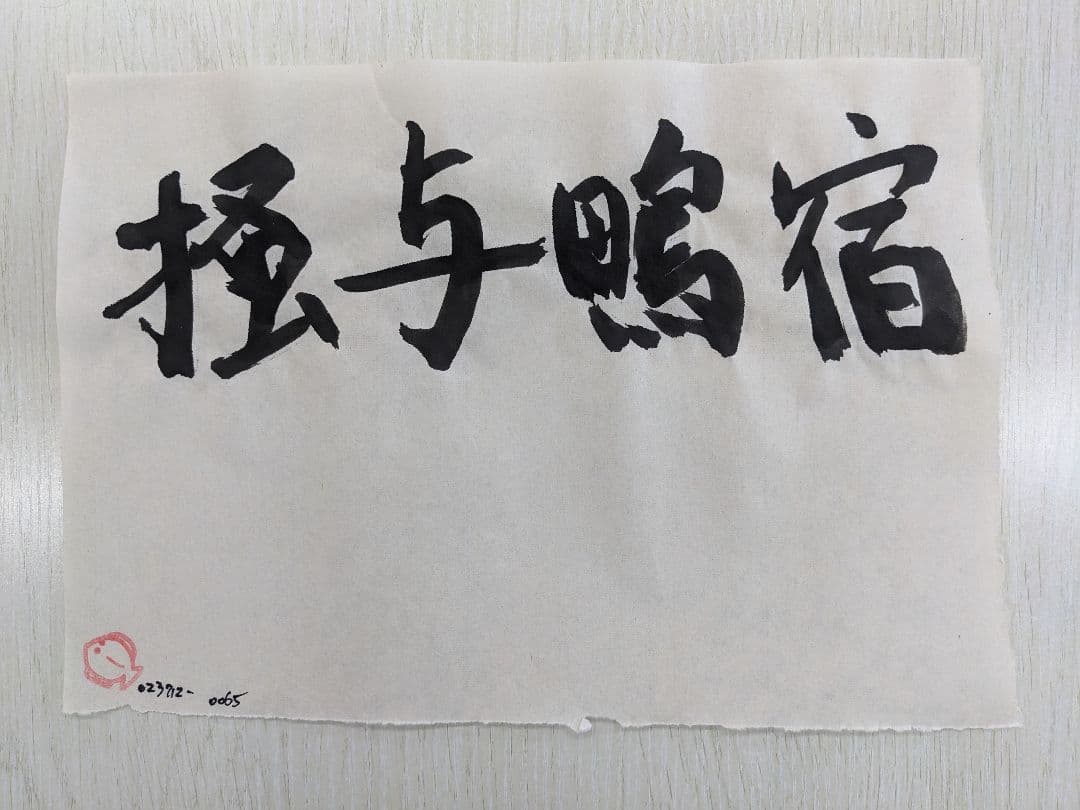 掻与鴫宿
023712- 0065